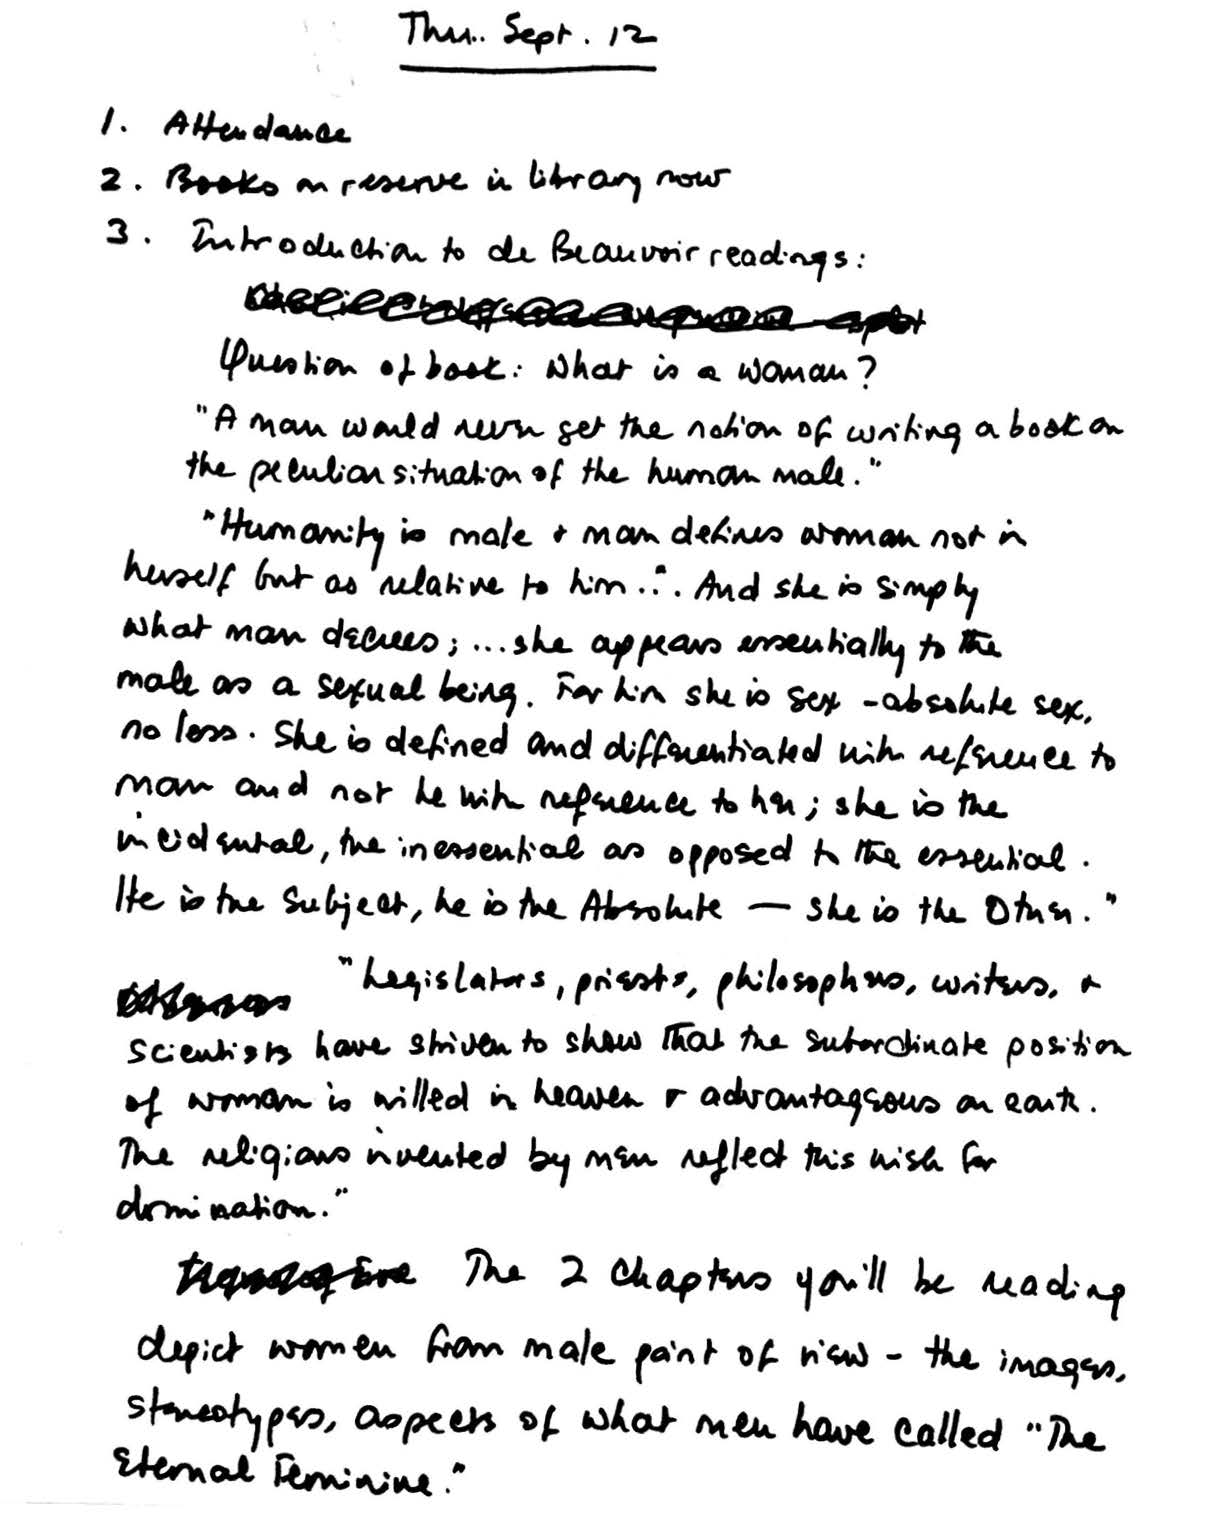 Thu. Sept. 12
1. Attendance
2. Books on reserve in library now
3. Introduction to de Beauvoir readings:
Question of book: What is a woman?
"A man would never get the notion of writing a book on
the peculiar situation of the human male."
"Humanity is male + man defines woman not in
herself but as relative to him..". And she is simply
what man decrees; ...she appears essentially to the
male as a sexual being. For him she is sex - absolute sex,
no less. She is defined and differentiated with reference to
man and not he with reference to her; she is the
incidental, the inessential as opposed to the essential.
He is the Subject, he is the Absolute — she is the Other."
"Legislators, priests, philosophers, writers, +
scientists have striven to show that the subordinate position
of woman is willed in heaven + advantageous on earth.
The religions invented by men reflect this wish for
domination."
The 2 chapters you'll be reading
depict women from male point of view - the images,
stereotypes, aspects of what men have called "The
Eternal Feminine."